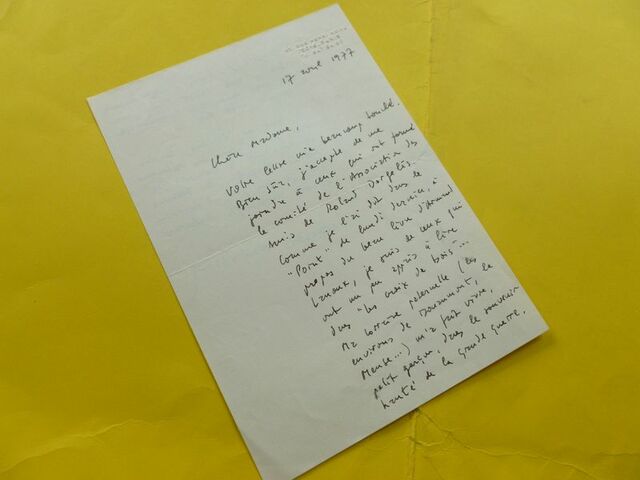 17 avril 1977
Chère Madame,
Votre lettre m'a beaucoup touché.
Bien sûr, j'accepte de me
joindre à ceux qui ont formé
le comité de l'Association des
Amis de Roland Dorgelès.
Comme je l'ai dit dans le
"Point" de lundi dernier, à
propos du beau livre d'Armand
Lanoux, je suis de ceux qui
ont un peu appris à lire
dans "les croix de bois"...
Ma Lorraine paternelle (les
environs de Douaumont, la
Meuse...) m'a fait vivre,
petit garçon, dans le souvenir
hanté de la grande guerre.